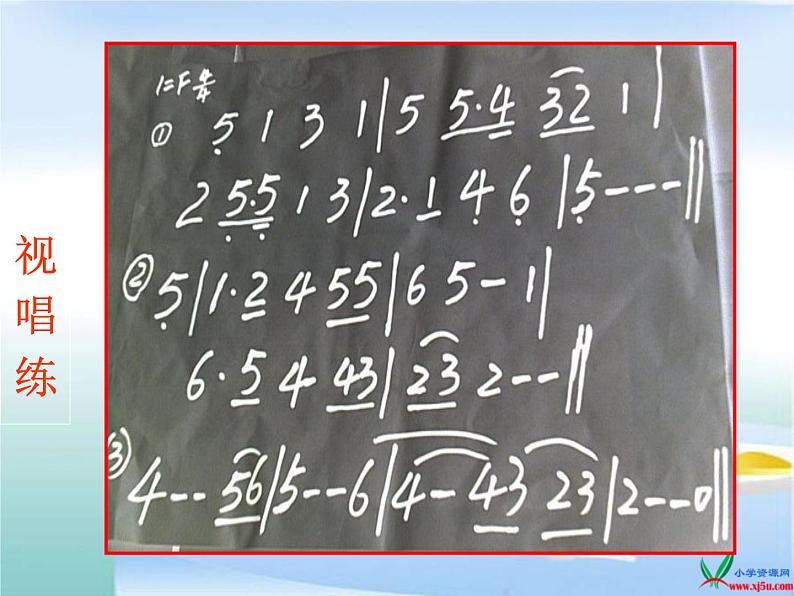 视唱练
1=F 4/4
① 5̣ 1 3 1 | 5 5·4 32 1 |
2 5̣·5̣ 1 3 | 2·1 4̣ 6̣ | 5̣ - - - ||
② 5̣ | 1·2 4 55 | 6 5 - 1 |
6·5 4 43 | 23 2 - - ||
③ 4 - - 56 | 5 - - 6 | 4 - 43 23 | 2 - - 0 ||
小学资源网
www.xj5u.com